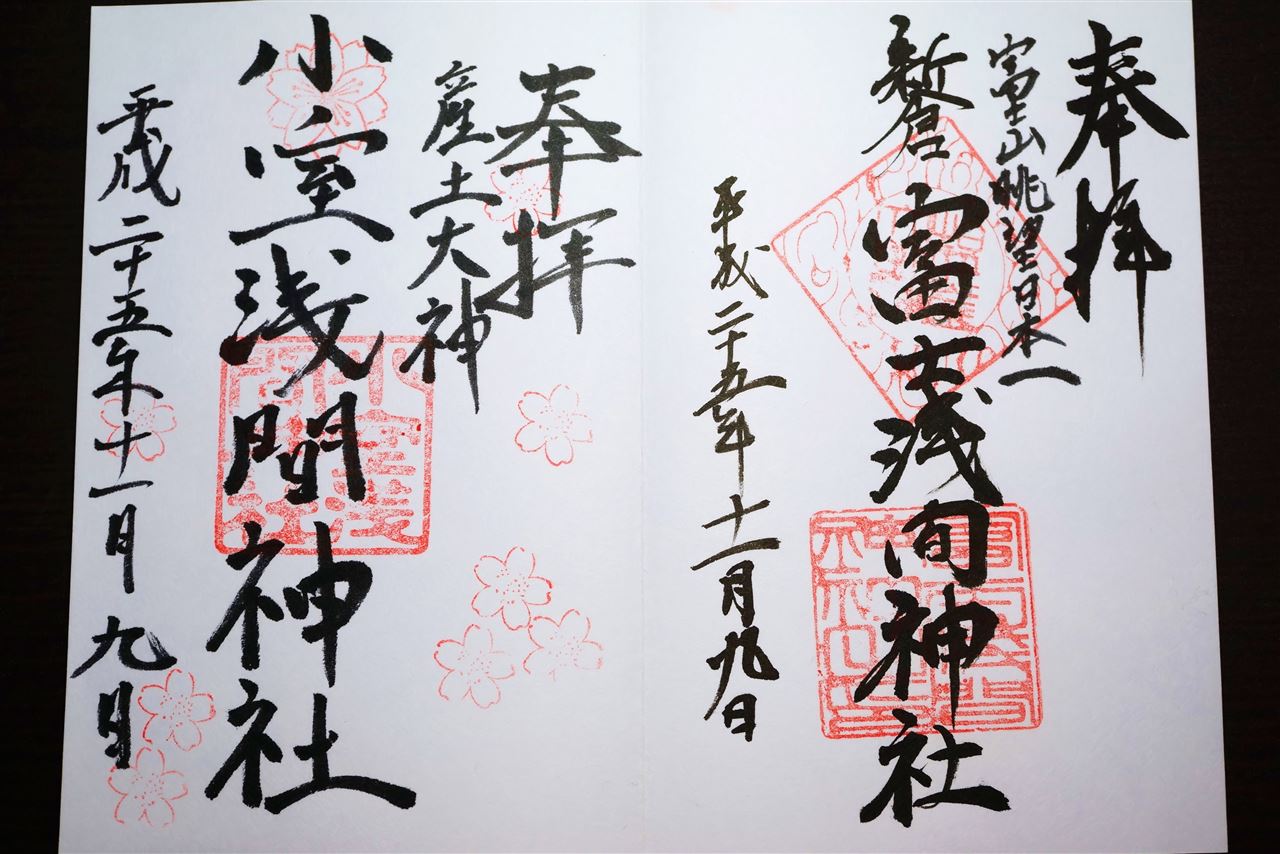 奉拝
富士山眺望日本一
新倉富士浅間神社
平成二十五年十一月九日
奉拝
産土大神
小室浅間神社
平成二十五年十一月九日